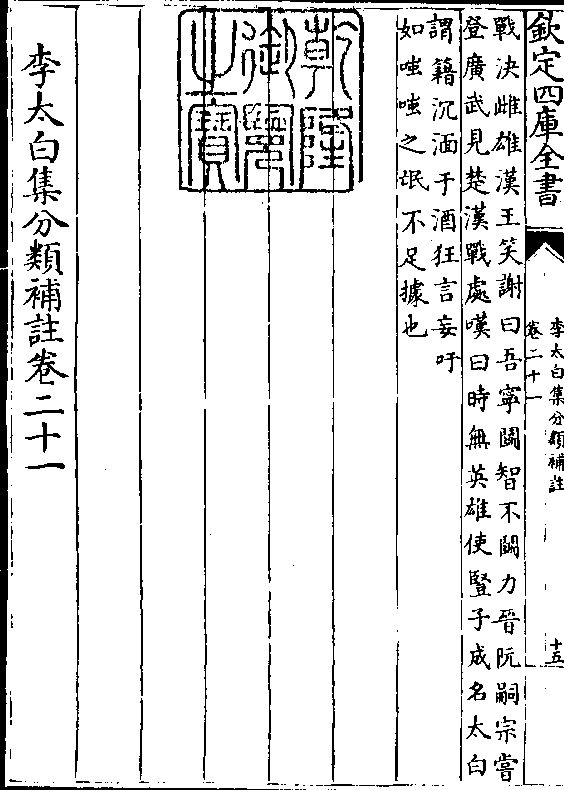 欽定四庫全書
李太白集分類補註
卷二十一
十五
戰決雌雄漢王笑謝曰吾寧鬭智不鬭力晉阮嗣宗嘗
登廣武見楚漢戰處嘆曰時無英雄使豎子成名太白
謂籍沉湎于酒狂言妄吁
如嗤嗤之氓不足據也
乾隆御覽之寶
李太白集分類補註卷二十一